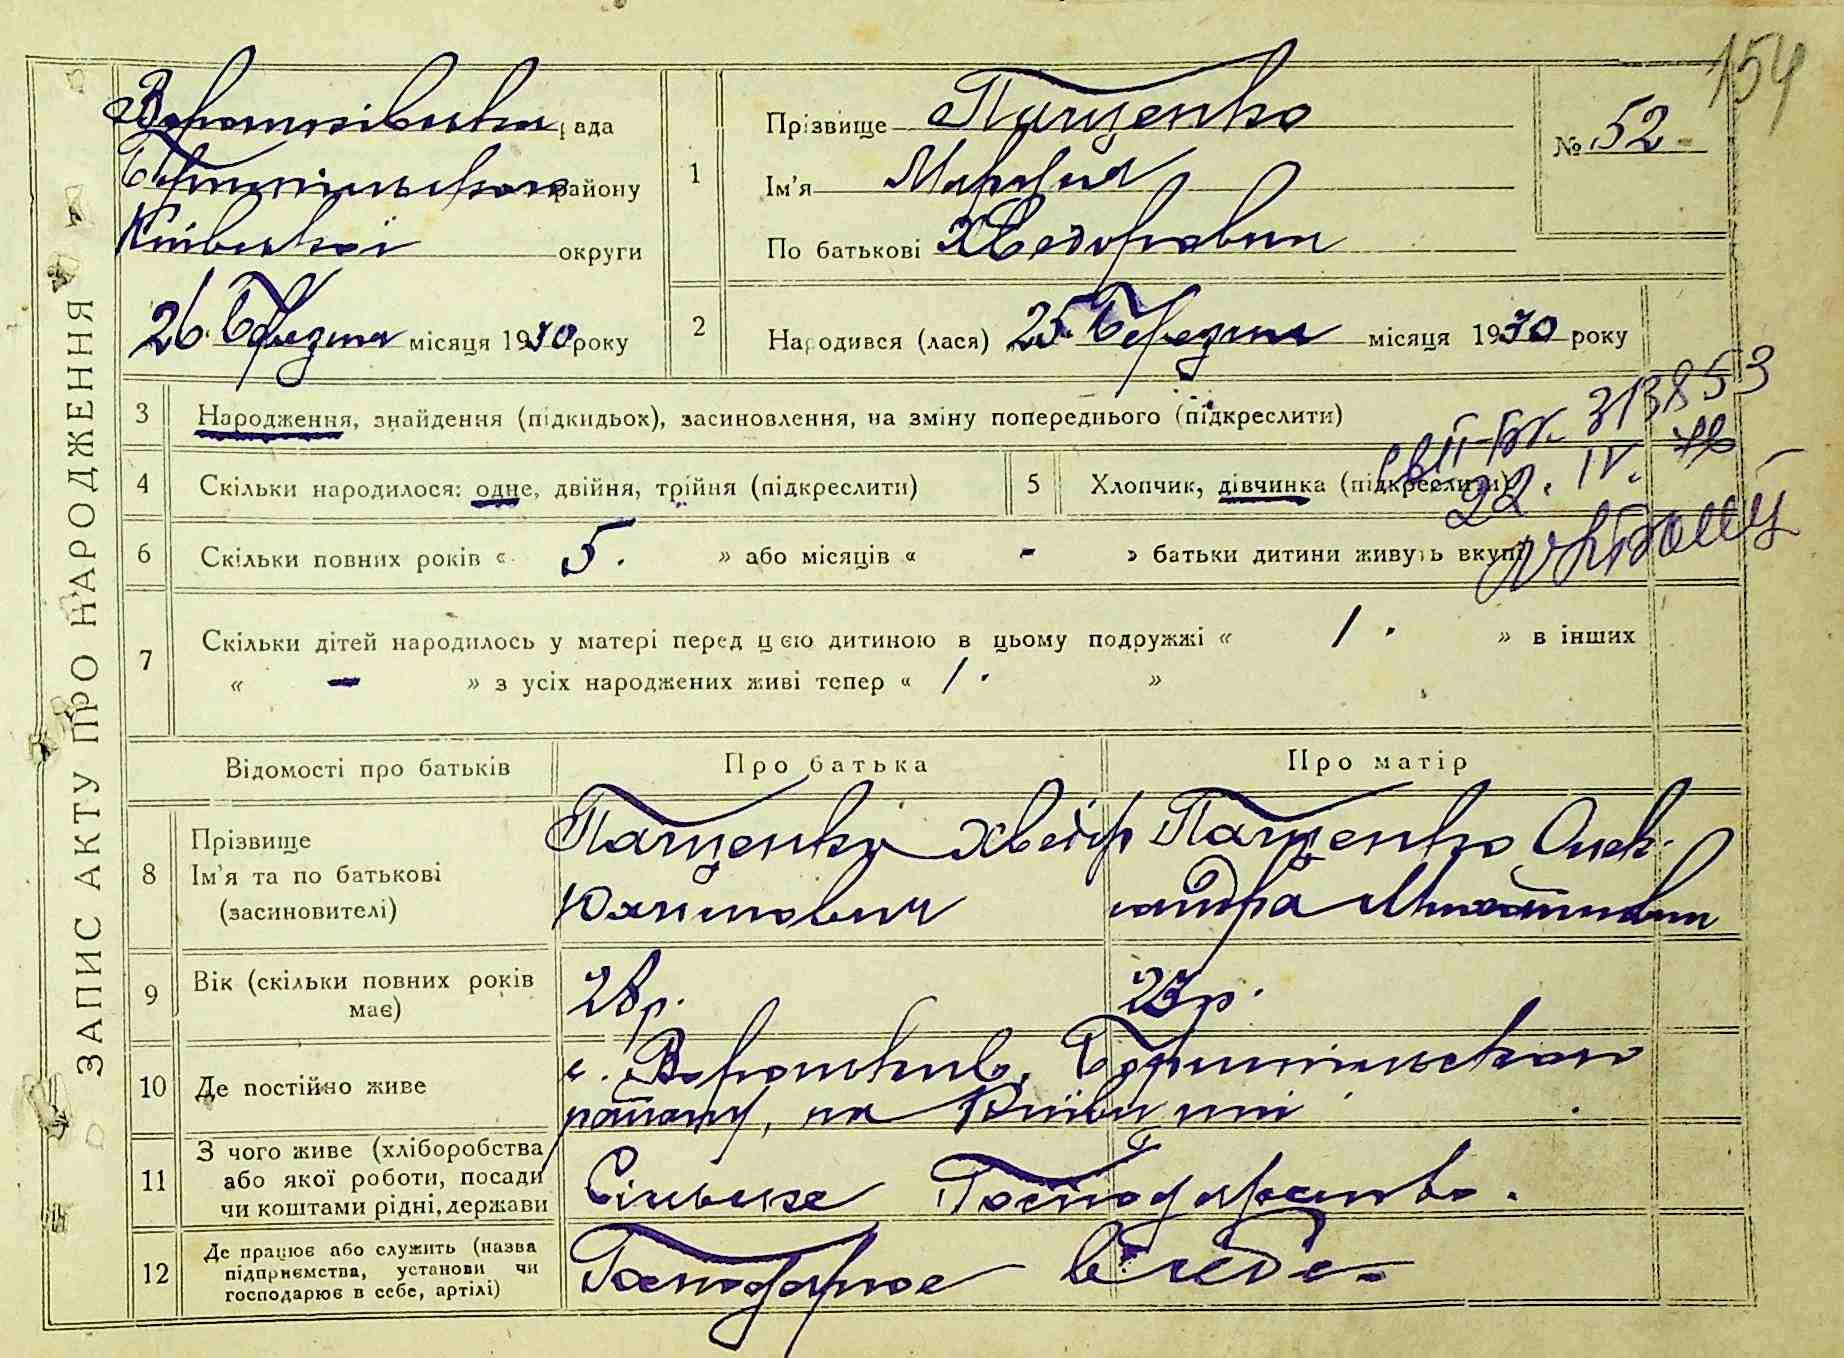 154
ЗАПИС АКТУ ПРО НАРОДЖЕННЯ
Вороньківська рада
Бориспільського району
Київської округи
26 Березня місяця 1930 року
1 Прізвище Пащенко
Ім'я Марфа
По батькові Хведоровна
№ 52
2 Народився (лася) 25 Березня місяця 1930 року
3 Народження, знайдення (підкидьох), засиновлення, на зміну попереднього (підкреслити)
313853
4 Скільки народилося: одне, двійня, трійня (підкреслити)
5 Хлопчик, дівчинка (підкреслити)
22. IV.
6 Скільки повних років « 5. » або місяців « - » батьки дитини живуть вкупі
7 Скільки дітей народилось у матері перед цією дитиною в цьому подружжі « 1. » в інших
« - » з усіх народжених живі тепер « 1. »
Відомості про батьків
Про батька
Про матір
8 Прізвище
Ім'я та по батькові
(засиновителі)
Пащенко Хведір
Юхимович
Пащенко Олек-
сандра Михайловна
9 Вік (скільки повних років
має)
28 р.
23 р.
10 Де постійно живе
с. Вороньків, Бориспільського
району, на Київщині
11 З чого живе (хліборобства
або якої роботи, посади
чи коштами рідні, держави
Сільське Господарство.
12 Де працює або служить (назва
підприємства, установи чи
господарює в себе, артілі)
Господарює в себе.